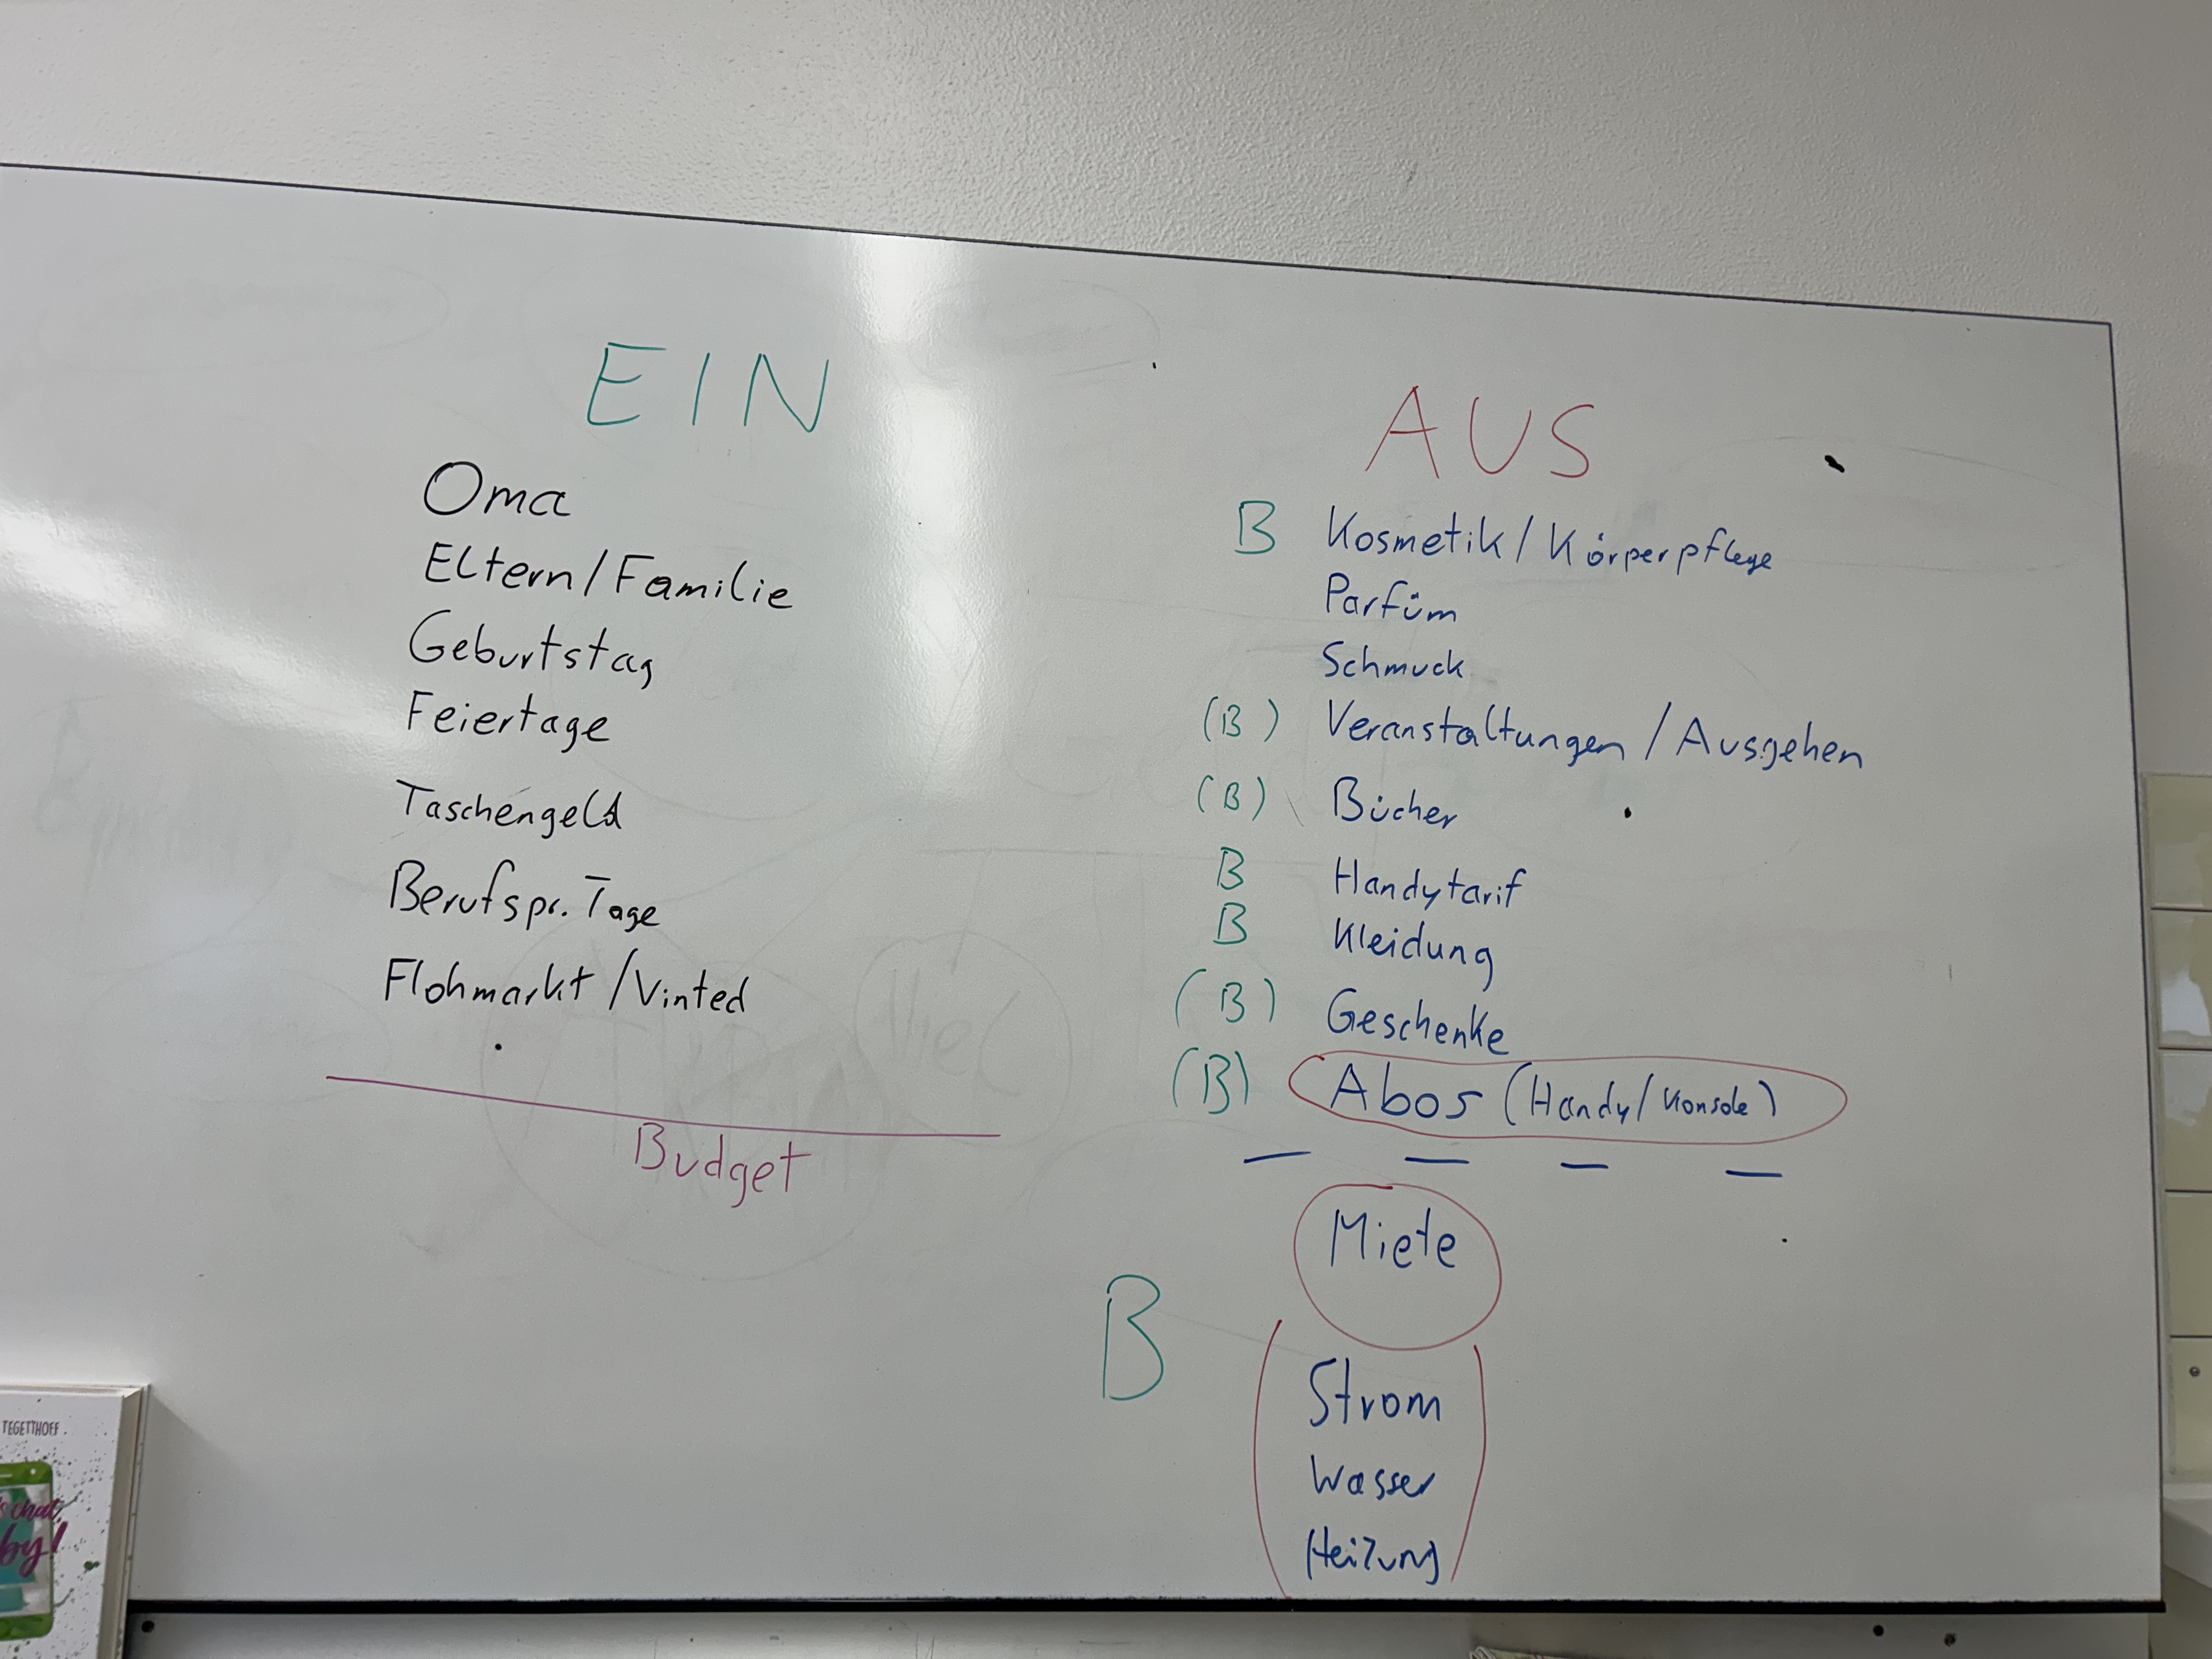 EIN
Oma
Eltern/Familie
Geburtstag
Feiertage
Taschengeld
Berufspr. Tage
Flohmarkt/Vinted
Budget
AUS
B Kosmetik/Körperpflege
Parfüm
Schmuck
(B) Veranstaltungen/Ausgehen
(B) Bücher
B Handytarif
B Kleidung
(B) Geschenke
(B) Abos (Handy/Konsole)
Miete
B
Strom
Wasser
Heizung
TEGETTHOFF
chat,
by!